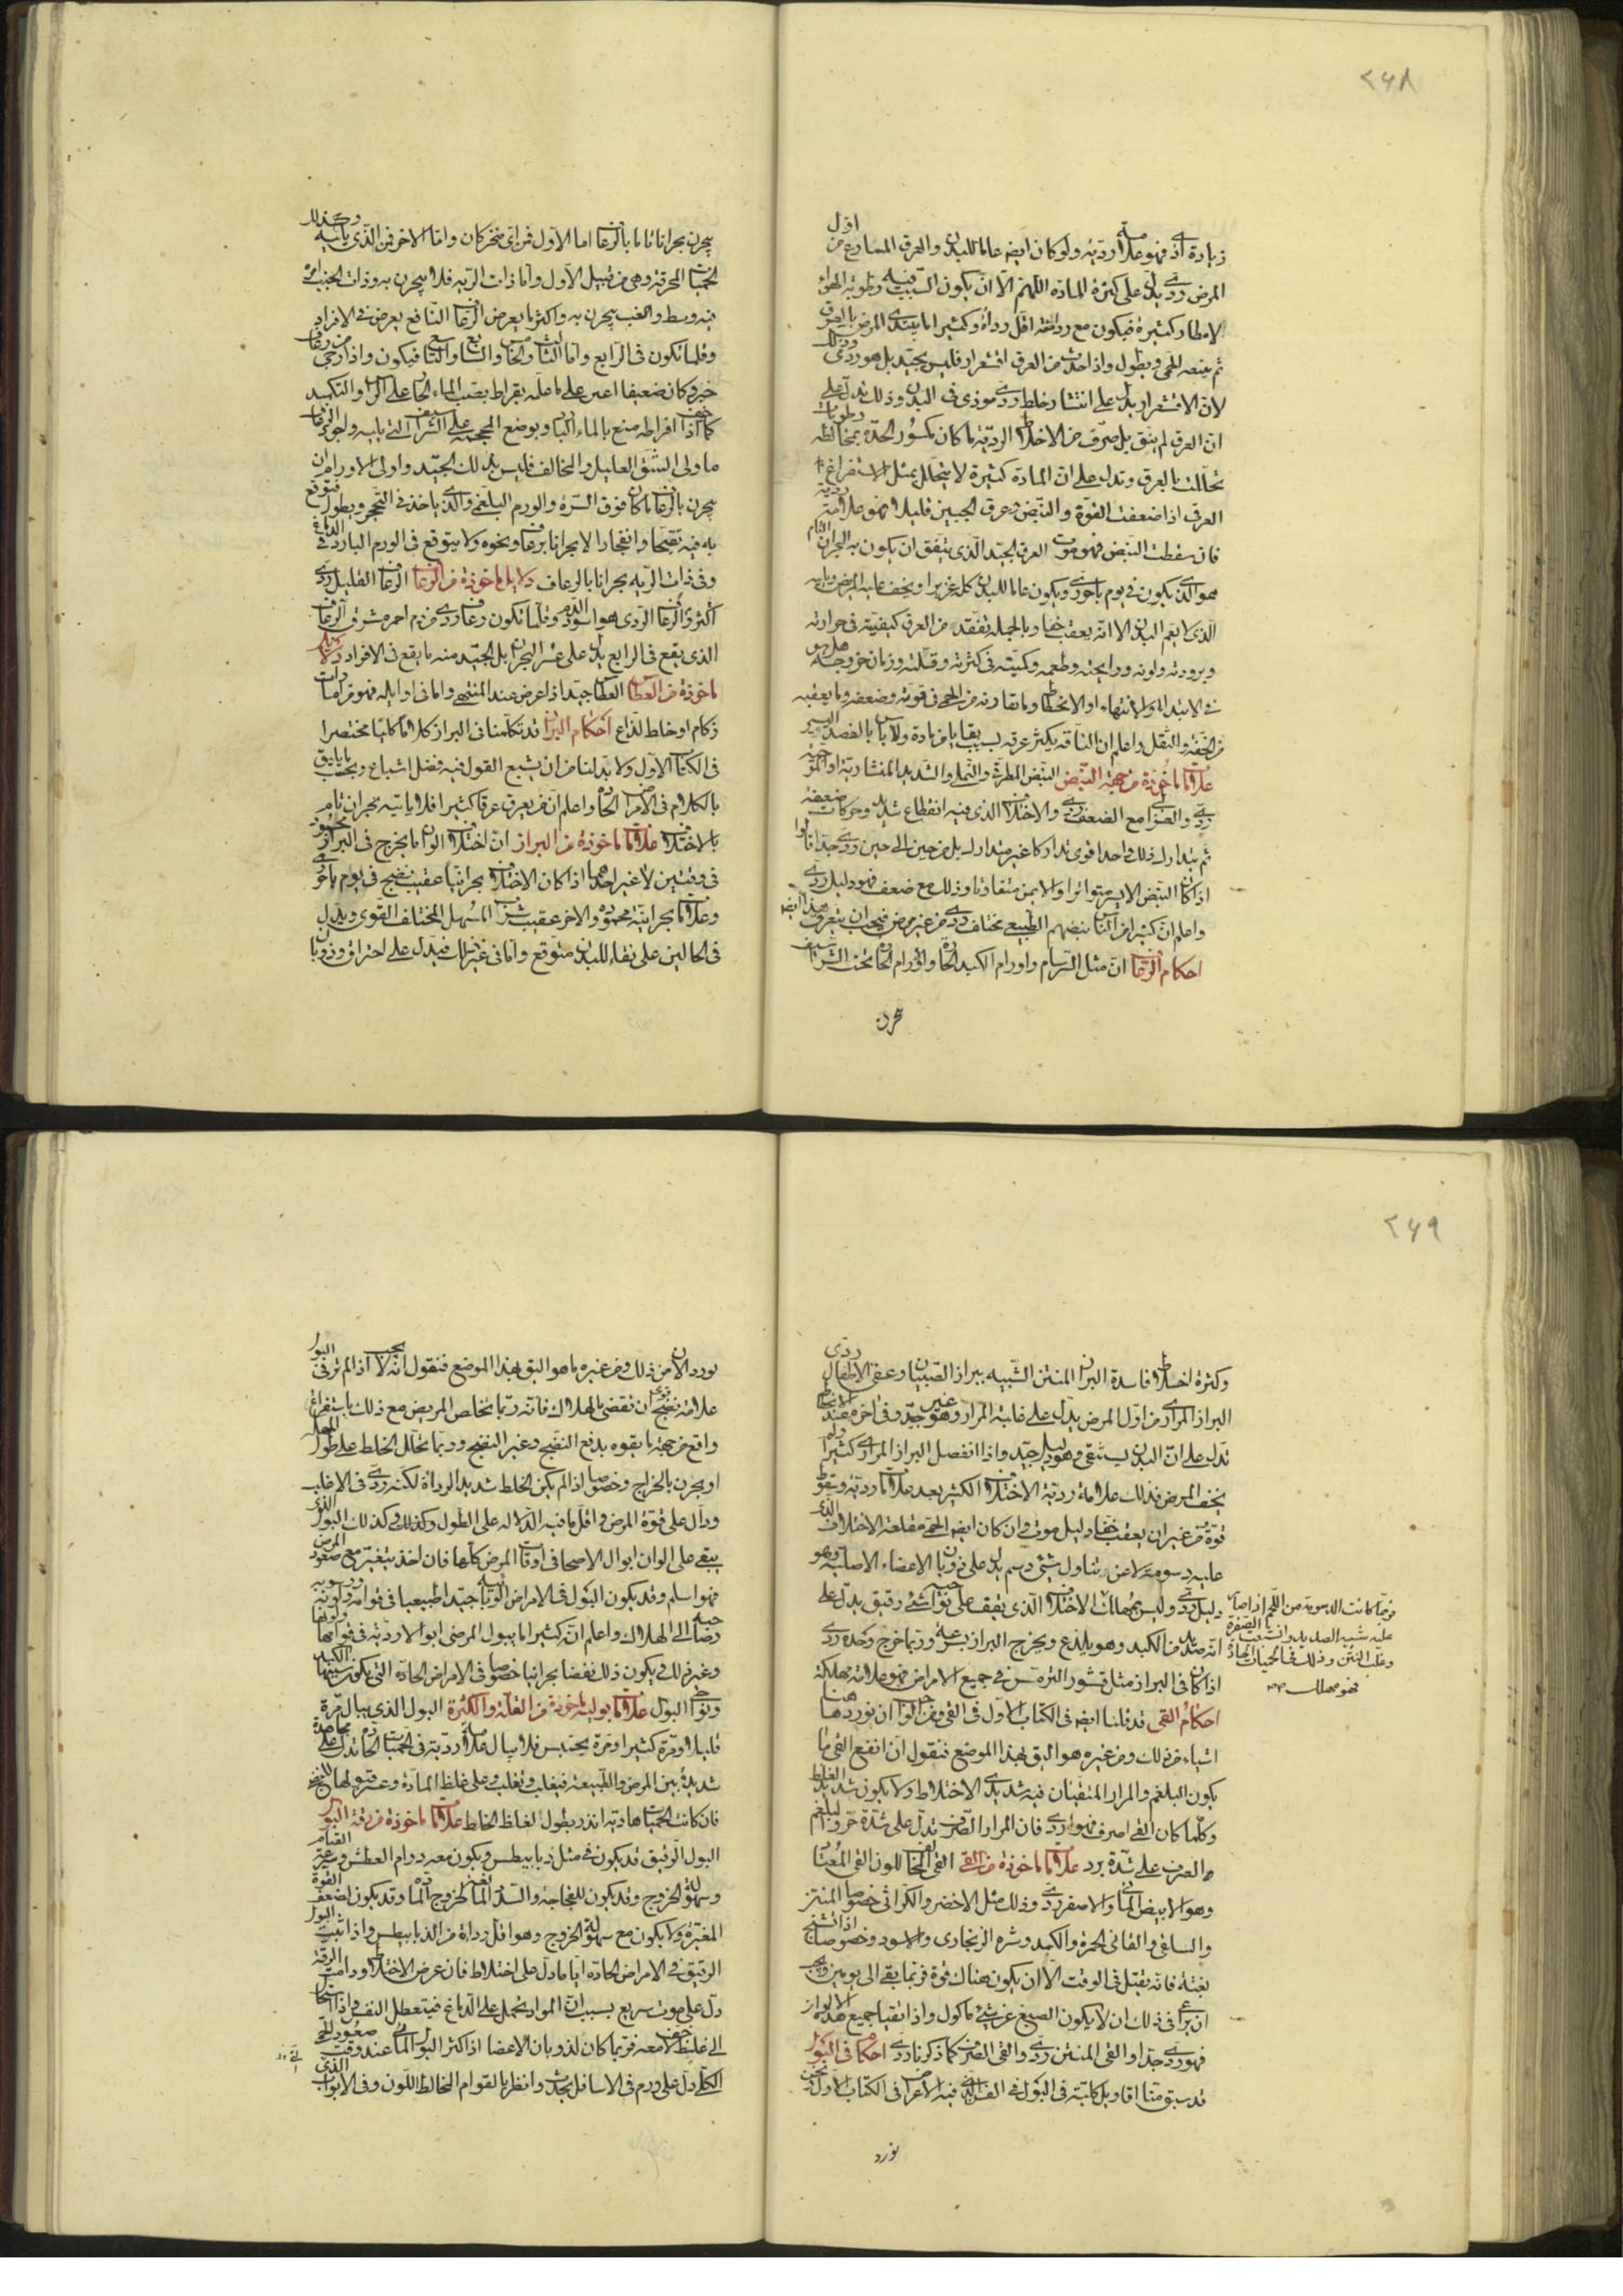 ٢٤٨
زيادة اذى فهو علامة ردية ولو كان ايضا عاما للبدن والعرق المسارع من اول
المرض ردى يدل على كثرة المادة اللهم الا ان يكون السبب فيه رطوبة الهواء
لامطار كثيرة فيكون مع رداءته اقل رداءة وكثيرا ما يبتدى المرض بالعرق
ثم يتبعه الحمى ويطول واذا حدث من العرق اقشعرار فليس بجيد بل هو ردى وذلك
لان الاقشعرار يدل على انتشار خلط ردى موذى فى البدن وذلك يدل على
ان العرق لم ينق بل صرف من الاخلاط الردية ما كان مكسور الحدة بمخالطة رطوبات
تحللت بالعرق وتدل على ان المادة كثيرة لا يتحلل بمثل الاستفراغ
العرق اذا ضعفت القوة والنبض وعرق الجبين قليلا فهو علامة ردية
فان سقطت النبض فهو موت العرق الجيد الذى يتفق ان يكون به البحران التام
هو الذى يكون فى يوم باحورى ويكون عاما للبدن كله غزيرا ويخف عليه المريض ويليه
الذى لا يعم البدن الا انه يعقب خفا وبالجملة تفقد من العرق كيفيته فى حرارته
وبرودته ولونه ورايحته وطعمه وكميته فى كثرته وقلته وزمان خروجه هل هو
فى الابتداء او الانتهاء او الانحطاط وما تقارنه من الحمى فى قوته وضعفه وما يعقبه
من الخفة والثقل واعلم ان الناقه يكثر عرقه بسبب بقايا من مادة ولا باس بالفصد اليسير
علامات ماخوذة من جهة النبض النبض المطرقى والنملى والشديد المنشارية او الموجية
ردى والغزالى مع الضعف ردى والاختلاف الذى فيه انقطاع شديد وحركات ضعيفة
ثم يتدارك ذلك واحد اقوى تداركا غير متدارك بل من حين الى حين ردى جدا قالوا
اذا كان النبض الايسر متواترا والايمن متفاوتا وذلك مع ضعف فهو دليل ردى
واعلم ان كثيرا من الناس نبضهم الطبيعى مختلف ردى من غير مرض فيجب ان يتعرف هذا ايضا
احكام الرعاف ان مثل السرسام واورام الكبد الحارة والاورام الحارة تحت الشراسيف
بحرن
يبحرن بحرانا تاما بالرعاف اما الاول فمن اى منخر كان واما الاخر فمن الذى يليه وكذلك
الحميات المحرقة وهى من قبيل الاول واما ذات الرية فلا يبحرن به وذات الجنب امره
فيه وسط والغب يبحرن به واكثر ما يعرض الرعاف النافع يعرض فى الافراد
وقلما تكون فى الرابع واما الثالث والخامس والسابع والتاسع فيكون واذا رجى من رعاف
خير وكان ضعيفا اعين على ما علمه بقراط بصب الماء الحار على الراس والتكميد
كما اذا خيف افراطه منع بالماء البارد وبوضع المحجمة على الشراسيف التى يليه واجود الرعاف
ما ولى الشق العليل والمخالف فليس بذلك الجيد واولى الاورام ان
يبحرن بالرعاف ما كان فوق السرة والورم البلغمى والذى ياخذ فى التحجر ويطول فتوقع
به فيه تقيحا وانفجارا لا بحرانا برعاف ونحوه ولا يتوقع فى الورم البارد فى الدماغ
وفى ذات الرية بحرانا بالرعاف دلايل ماخوذة من الرعاف الرعاف القليل ردى
اكثره والرعاف الردى هو اسود الدم وقلما تكون رعاف ردى من دم احمر مشرق الرعاف
الذى يقع فى الرابع يدل على عسر البحران بل الجيد منه ما يقع فى الافراد دلايل
ماخوذة من العطاس العطاس جيد اذا عرض عند المنتهى واما فى اوايله فهو من امارات
زكام او خلط لذاع احكام البراز قد تكلمنا فى البراز كلاما كليا مختصرا
فى الكتاب الاول ولا بد لنا من ان يشبع القول فيه فضل اشباع وبحسب ما يليق
بالكلام فى الامراض الحادة واعلم ان من يعرق عرقا كثيرا فلا ياتيه بحران تام
بالاختلاف علامات ماخوذة من البراز ان اختلاف الوان ما يخرج فى البراز محمود
فى وقتين لا غير احدهما اذا كان الاختلاف بحرانيا عقيب نضج فى يوم باحورى
وعلامات بحرانية محمودة والاخر عقيب شرب المسهل المختلف القوى ويدل
فى الحالين على نقاء للبدن متوقع واما فى غير ذلك فيدل على احتراق وذوبان
٢٤٩
وكثرة اخلاط فاسدة البراز المنتن الشبيه ببراز الصبيان وعقى الاطفال ردى
البراز المرارى من اول المرض يدل على غلبة المرار وهو غير جيد وفى اخره عند الانحطاط
تدل على ان البدن يستنقى وهو دليل جيد واذا انفصل البراز المرارى كثيرا ولم
يخف المرض فذلك علامة ردية الاختلاف الكثير بعد علامات ردية وسقوط
قوة من غير ان يعقب خفا دليل موت وان كان ايضا الحمى مقلعة الاختلاف الذى
عليه دسومة لا عن تناول شى دسم يدل على ذوبان الاعضاء الاصلية وهو
دليل ردى وليس بمهلك الاختلاف الذى يقف على نواحيه شى رقيق يدل على
انه صديد من الكبد وهو يلذع ويخرج البراز بسرعة وربما خرج وحده ردى
اذا كان فى البراز مثل قشور الترمس فى جميع الامراض فهو علامة مهلكة
احكام القى قد قلنا ايضا فى الكتاب الاول فى القى ومن الواجب ان نورد هاهنا
اشياء من ذلك ومن غيره هو اليق بهذا الموضع فنقول ان انفع القى ما
يكون البلغم والمرار المتقيان فيه شديدى الاختلاط ولا يكون شديد الغلظ
وكلما كان القى اصرف فهو اردى فان المرار الصرف تدل على شدة حر والبلغم
الصرف على شدة برد علامات ماخوذة من القى القى المخالف للون القى المعتاد
وهو الابيض المائى والاصفر ردى وذلك مثل الاخضر والكراثى خصوصا المنتن
والسلقى والقانى الحمرة والكمد وشره الزنجارى والاسود وخصوصا اذا تشنج
بغتة فانه يقتل فى الوقت الا ان يكون هناك قوة فربما بقى الى يومين ويجب
ان يراعى فى ذلك ان لا يكون الصبغ عن شى ماكول واذا تقيا جميع هذه الالوان
فهو ردى جدا والقى المنتن ردى والقى الصرف كما ذكرنا ردى احكام فى البول
قد سبق منا اقاويل كلية فى البول فى الفن الذى فيه الاعراض فى الكتاب الاول ونحن
نورد
فربما كانت الدسومة من اللحم اذا صار
عليه شبيه الصديد والتشعب بالصفرة
وغلب النتن وذلك فى الحميات الحادة
فهو مهلك
نورد الان من ذلك ومن غيره ما هو اليق بهذا الموضع فنقول انه لا يجب اذا لم تر فى البول
علامة نضج ان تقضى بالهلاك فانه ربما تخلص المريض مع ذلك باستفراغ
واقع من جهة ما بقوة يدفع النضج وغير النضج وربما تحلل الخلط على طول المهلة
او بحرن بالخراج وخصوصا اذا لم يكن الخلط شديد الرداة لكنه ردى فى الاغلب
ودال على قوة المرض واقل ما فيه الدلالة على الطول وكذلك وكذلك البول الذى
يبقى على الوان ابوال الاصحا فى اوقات المرض كلها فان اخذ يتغير مع صعود المرض
فهو اسلم وقد يكون البول فى الامراض الوبايية جيدا طبيعيا فى قوامه ولونه ورسوبه
وصاحبه الى الهلاك واعلم ان كثيرا ما يبول المرضى ابوالا ردية فى قوامها ولونها
وغير ذلك ويكون ذلك نفضا بحرانيا خصوصا فى الامراض الحادة التى يكون سببها الكبد
ونواحى البول علامات بولية ماخوذة من القلة والكثرة البول الذى يبال مرة
قليلا ومرة كثيرا ومرة يحتبس فلا يبال علامة ردية فى الحميات الحادة تدل على مجاهدة
شديدة بين المرض والطبيعة فيغلب وتغلب وعلى غلظ المادة وعسر قبولها للنضج
فان كانت الحميات هادية انذر بطول لغلظ الخلط علامات ماخوذة من رقة البول
البول الرقيق قد يكون فى مثل ديابيطس ويكون معه دوام العطش وسرعة القيام
وسهولة الخروج وقد يكون للفجاجة والسدد المانعة لخروج المادة وقد يكون لضعف القوة
المغيرة ولا يكون مع سهولة الخروج وهو اقل رداة من الديابيطس واذا ثبت البول
الرقيق فى الامراض الحادة اياما دل على اختلاط فان عرض الاختلاط ودامت الرقة
دل على موت سريع بسبب ان المواد تحمل على الدماغ فيتعطل النفس واذا استحال
الى غليظ لا خف معه فربما كان لذوبان الاعضا اذا كثر البول المائى عند وقت صعود الحمى
الكلى دل على ورم فى الاسافل يحدث وانظر بالقوام المخالط اللون وفى الابواب الذى